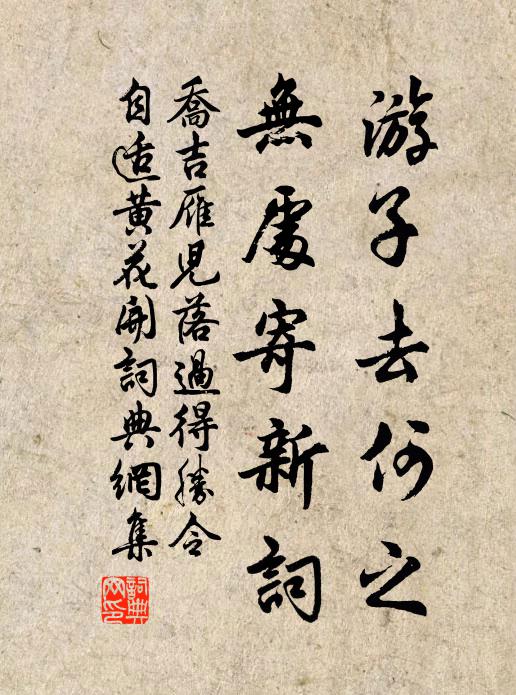 游子去何之
無處寄新詞
喬吉雁児落過得勝令
自适黄花開詞典網集
詞典网印